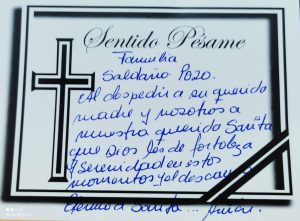 Sentido Pésame
Familia
Saldaña Pozo.
Al despedir a su querida
madre y nosotros a
nuestra querida Sarita
que Dios les de fortaleza
y serenidad en estos
momentos y el descanso
Eterno a Sarita... Amén.